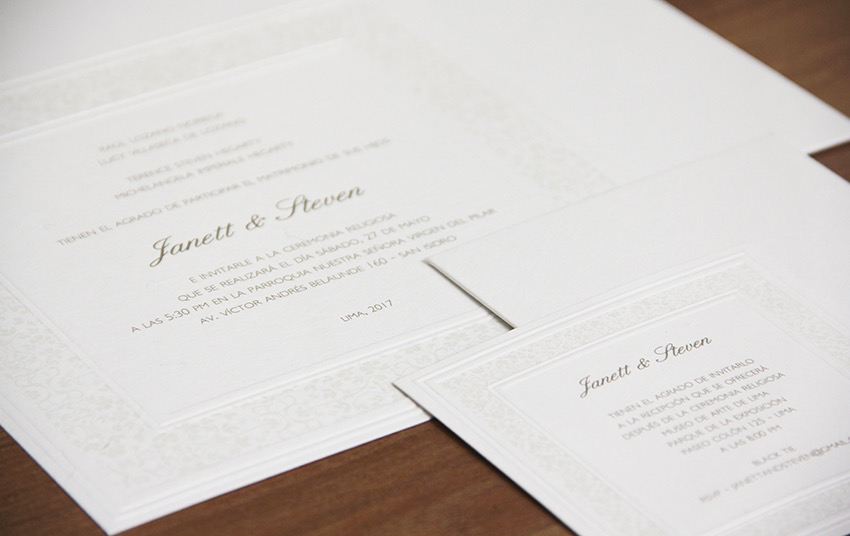 RAÚL LOZANO NORIEGA
LUCY VILLASECA DE LOZANO
TERENCE STEVEN HEGARTY
MICHELANGELA IMPERIALE HEGARTY
TIENEN EL AGRADO DE PARTICIPAR EL MATRIMONIO DE SUS HIJOS
Janett & Steven
E INVITARLE A LA CEREMONIA RELIGIOSA
QUE SE REALIZARÁ EL DÍA SÁBADO, 27 DE MAYO
A LAS 5:30 PM EN LA PARROQUIA NUESTRA SEÑORA VIRGEN DEL PILAR
AV. VÍCTOR ANDRÉS BELAUNDE 160 - SAN ISIDRO
LIMA, 2017
Janett & Steven
TIENEN EL AGRADO DE INVITARLO
A LA RECEPCIÓN QUE SE OFRECERÁ
DESPUÉS DE LA CEREMONIA RELIGIOSA
MUSEO DE ARTE DE LIMA
PARQUE DE LA EXPOSICIÓN
PASEO COLÓN 125 - LIMA
A LAS 8:00 PM
BLACK TIE
RSVP - JANETTANDSTEVEN@GMAIL.